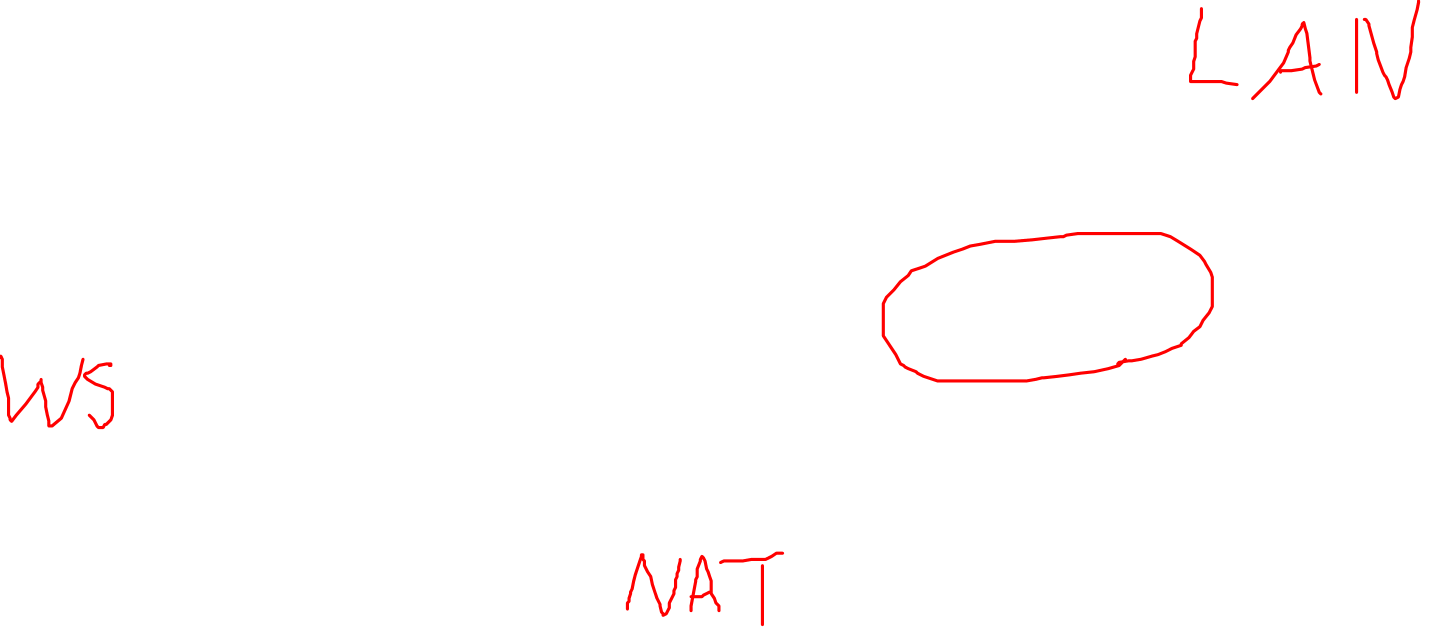 LAN
WS
NAT